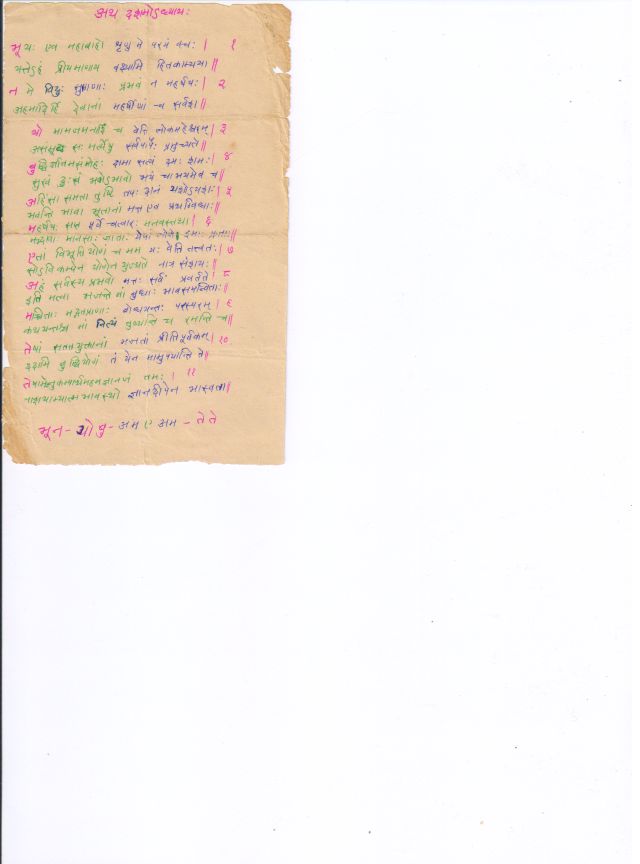 अथ दशमोऽध्यायः
भूयः एव महाबाहो शृणु मे परमं वचः | १
यत्तेऽहं प्रीयमाणाय वक्ष्यामि हितकाम्यया ||
न मे विदुः सुरगणाः प्रभवं न महर्षयः | २
अहमादिर्हि देवानां महर्षीणां च सर्वशः ||
यो मामजमनादिं च वेत्ति लोकमहेश्वरम् | ३
असंमूढः सः मर्त्येषु सर्वपापैः प्रमुच्यते ||
बुद्धिर्ज्ञानमसंमोहः क्षमा सत्यं दमः शमः | ४
सुखं दुःखं भवोऽभावो भयं चाभयमेव च ||
अहिंसा समता तुष्टि तपः दानं यशोऽयशः | ५
भवन्ति भावा भूतानां मत्त एव पृथग्विधाः ||
महर्षयः सप्त पूर्वे चत्वारः मनवस्तथा | ६
मद्भावा मानसाः जाताः येषां लोके इमाः प्रजाः ||
एतां विभूतिं योगं च मम यः वेत्ति तत्त्वतः | ७
सोऽविकम्पेन योगेन युज्यते नात्र संशयः ||
अहं सर्वस्य प्रभवो मत्तः सर्वं प्रवर्तते | ८
इति मत्वा भजन्ते मां बुधाः भावसमन्विताः ||
मच्चित्ताः मद्गतप्राणाः बोधयन्तः परस्परम् | ९
कथयन्तश्च मां नित्यं तुष्यन्ति च रमन्ति च ||
तेषां सततयुक्तानां भजतां प्रीतिपूर्वकम् | १०
ददामि बुद्धियोगं तं येन मामुपयान्ति ते ||
तेषामेवानुकम्पार्थमहमज्ञानजं तमः | ११
नाशयाम्यात्मभावस्थो ज्ञानदीपेन भास्वता ||
भून - योबु - अम ए अम - तेते